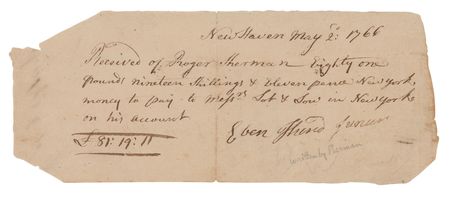 New Haven May 2d: 1766
Received of Roger Sherman Eighty one
pounds nineteen Shillings & eleven pence New York
money to pay to Messrs Lot & Low in New York
on his account
£ 81: 19: 11
Eben
written by Sherman